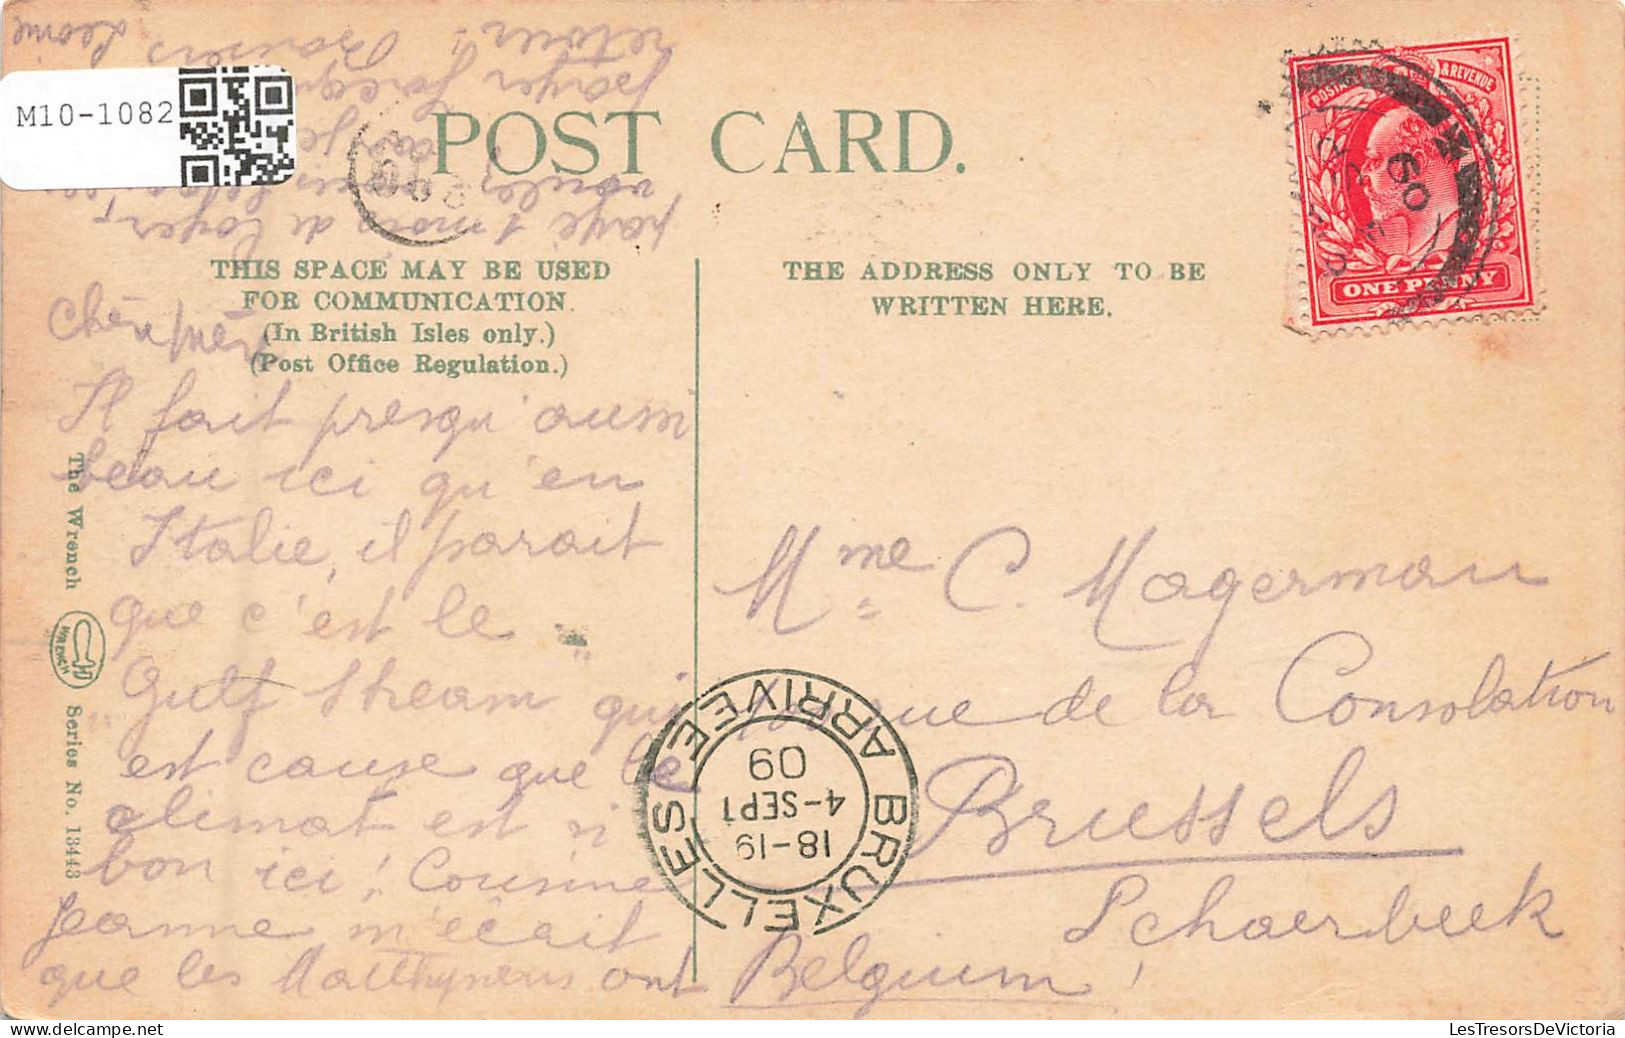 M10-1082
POST CARD.
THIS SPACE MAY BE USED
FOR COMMUNICATION.
(In British Isles only.)
(Post Office Regulation.)
THE ADDRESS ONLY TO BE
WRITTEN HERE.
POSTAGE & REVENUE
ONE PENNY
Il fait presqu'aussi
beau ici qu'en
Italie, il parait
que c'est le
"Gulf Stream" qui
est cause que le
climat est si
bon ici! Cousine
Jeanne m'écrit
que les Matthyssens ont
payé 1 mois de loyer,
retour!! Baisers Léonie
Mme C. Magerman
rue de la Consolation
Brussels
Schaerbeek
Belgium!
BRUXELLES ARRIVEE
18-19
4-SEPT
09
The Wrench
WRENCH
Series No. 13443
LesTresorsDeVictoria